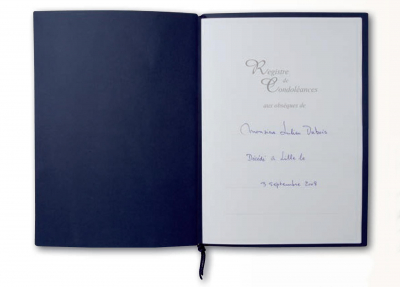 Registre
de
Condoléances
aux obsèques de
Monsieur Lucien Dubois
Décédé à Lille le
9 septembre 2009